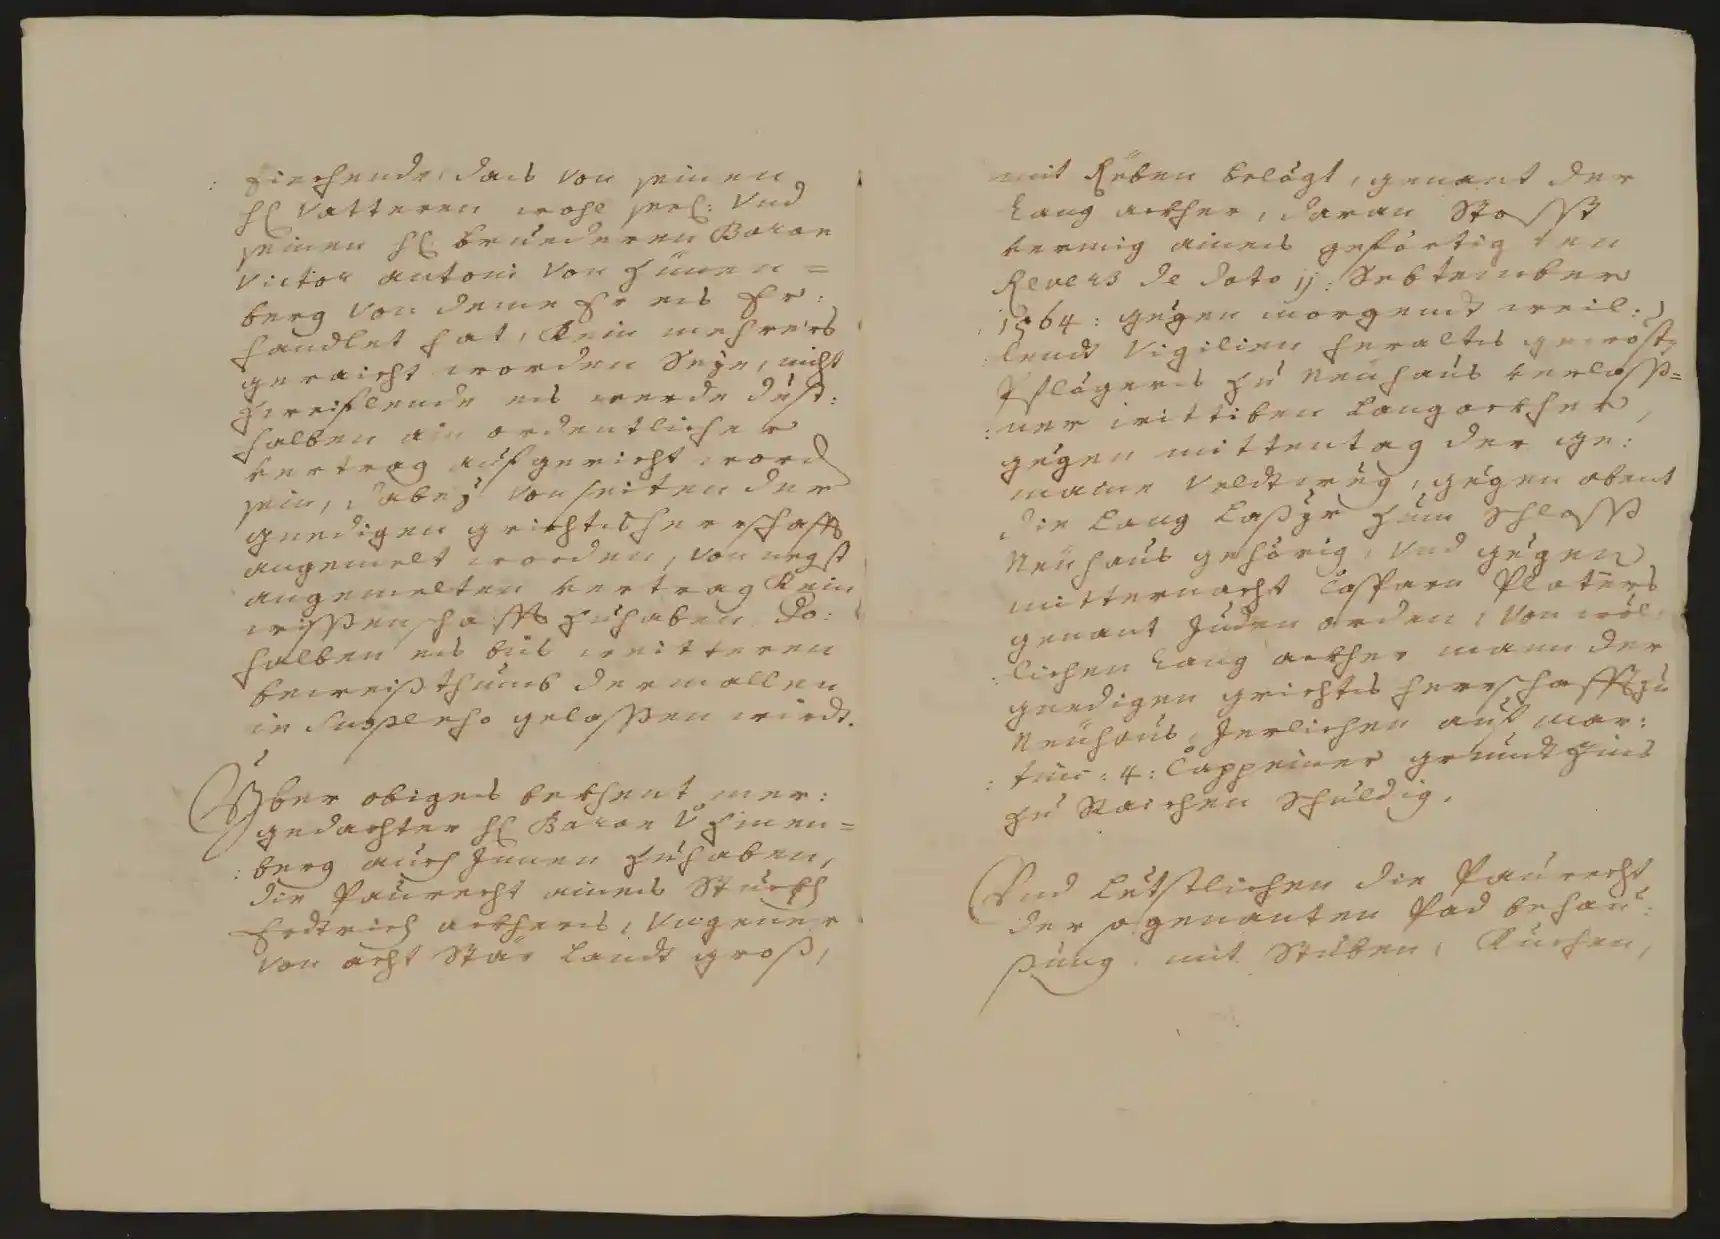 ziechende, das von seinen
H: Vatteren wohl seel: Vnd
seinen H: brüederen Baron
Victor antoni Von Hünen=
berg von deme Er es Er:
handlet hat, Kein mehrers
geraicht worden Seye, nicht
zweiflende es werde dest:
halben ain ordentlicher
vertrag aufgericht word
sein, dabeÿ von seiten der
gnedigen grichtsherrschafft
angemelt worden, von negst
angemelten vertrag Kein
wissenschafft zuhaben do:
halben es bis weitteren
beweißthumb dermallen
in gelassen wirdt.
Yber obiges bekhent mer:
gedachter H: Baron V: Hinen=
berg auch Innen zuhaben,
die Paurecht aines Stuckh
Erdtrich ackhers, Vngever
von acht Stär landt groß,
mit Röben belögt, genant der
Lang ackher, daran Stosst
vermig aines geförtigten
Revers de dato 11: Sebtember
1564: gegen morgendt weil:
lendt Vigilien heraltes gewöst
Pflögers zu Neuhaus verlass=
ner wittiben Langackher,
gegen mittentag der ge:
maine Veldtweg, gegen abent
die Lang zum Schloss
Neuhaus gehörig, Vnd gegen
mitternacht Casparn Platers
genant Juden arden, Von wöl
lichen Lang ackher mann der
gnedigen grichts herrschafft zu
Neuhaus, Jerlichen auf mar:
tini: 4: Cappeiner grundt Zins
zu Raichen Schuldig.
Vnd Letstlichen die Paurecht
der sogenanten Pad behau:
ßung mit Stuben, Kuchen,